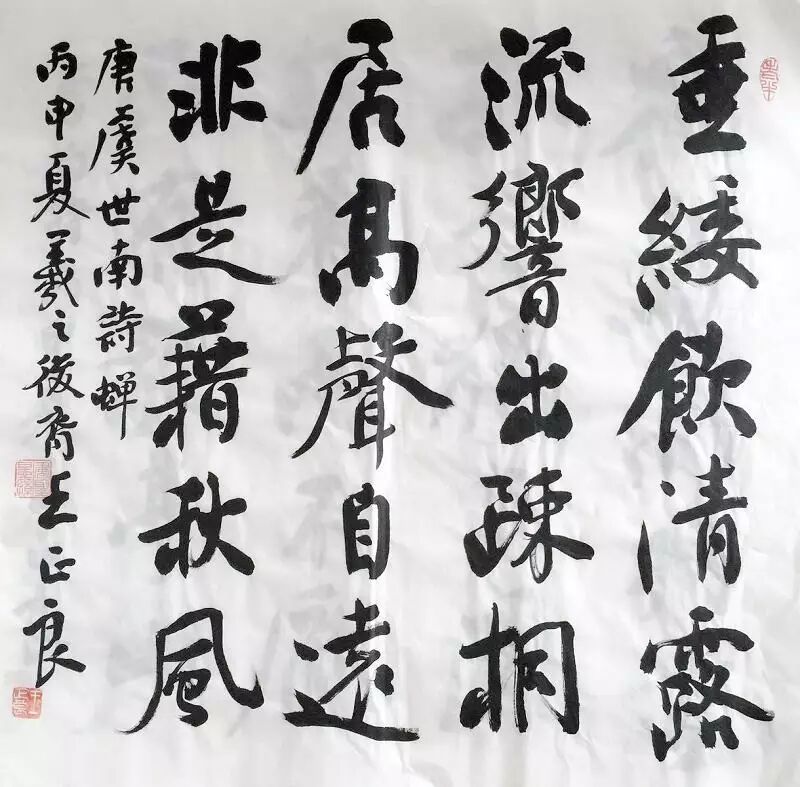 垂緌飲清露
流響出疎桐
居高聲自遠
非是藉秋風
唐虞世南詩蟬
丙申夏羲之後裔王正良